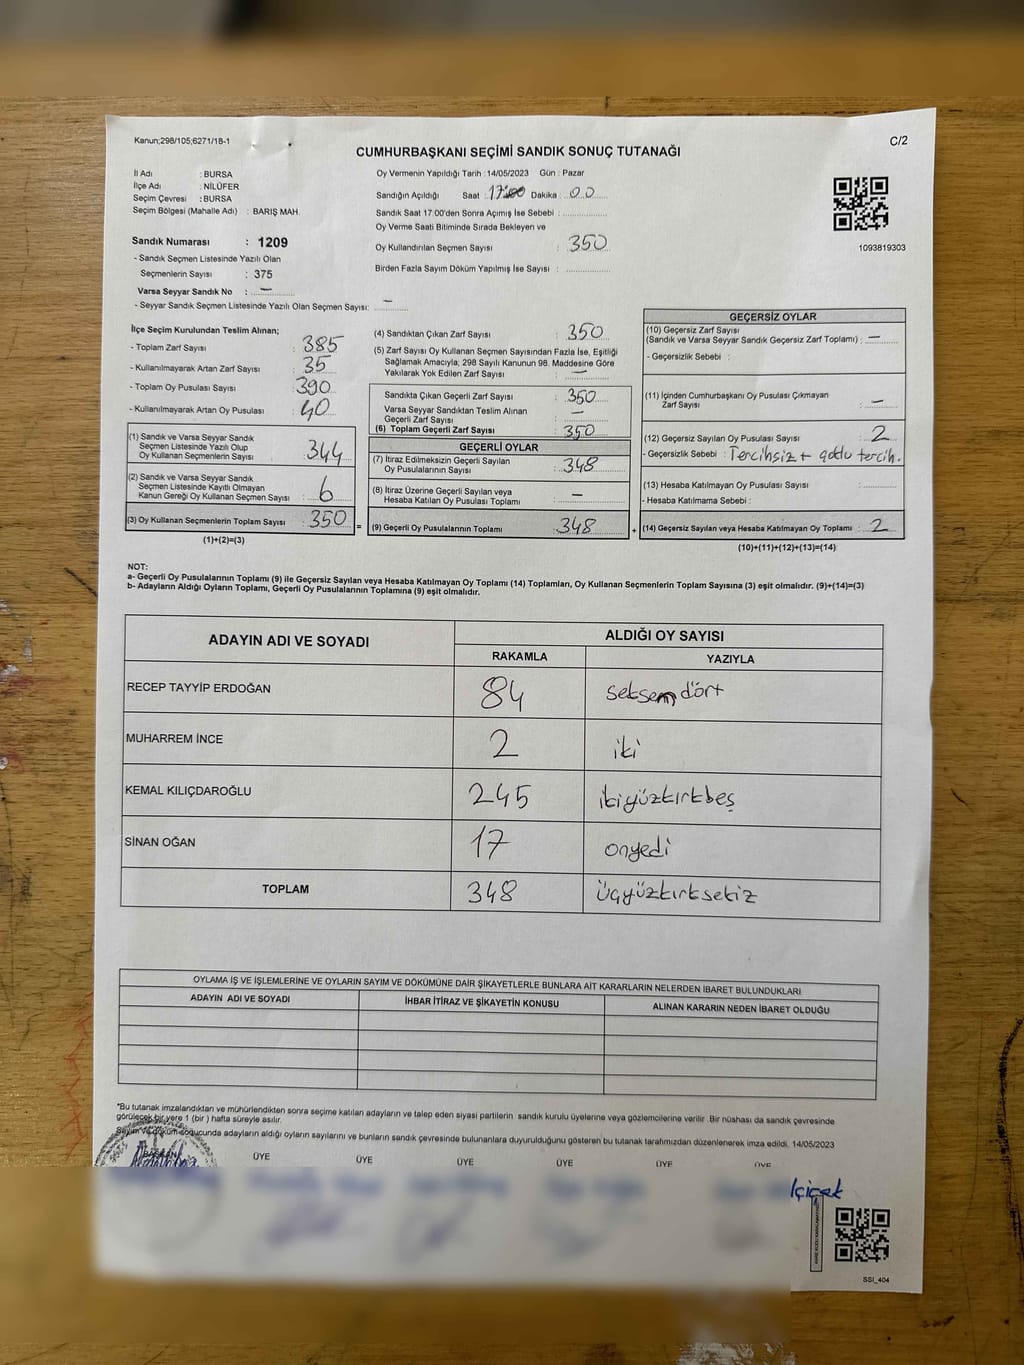 Kanun;298/105;6271/18-1
C/2
CUMHURBAŞKANI SEÇİMİ SANDIK SONUÇ TUTANAĞI
İl Adı : BURSA
İlçe Adı : NİLÜFER
Seçim Çevresi : BURSA
Seçim Bölgesi (Mahalle Adı) : BARIŞ MAH.
Sandık Numarası : 1209
- Sandık Seçmen Listesinde Yazılı Olan
Seçmenlerin Sayısı : 375
Varsa Seyyar Sandık No : —
- Seyyar Sandık Seçmen Listesinde Yazılı Olan Seçmen Sayısı: —
Oy Vermenin Yapıldığı Tarih : 14/05/2023 Gün : Pazar
Sandığın Açıldığı Saat 17:00 Dakika : 00
Sandık Saat 17:00'den Sonra Açımış İse Sebebi :
Oy Verme Saati Bitiminde Sırada Bekleyen ve
Oy Kullandırılan Seçmen Sayısı : 350
Birden Fazla Sayım Döküm Yapılmış İse Sayısı :
1093819303
İlçe Seçim Kurulundan Teslim Alınan;
- Toplam Zarf Sayısı : 385
- Kullanılmayarak Artan Zarf Sayısı : 35
- Toplam Oy Pusulası Sayısı : 390
- Kullanılmayarak Artan Oy Pusulası : 40
(1) Sandık ve Varsa Seyyar Sandık
Seçmen Listesinde Yazılı Olup
Oy Kullanan Seçmenlerin Sayısı : 344
(2) Sandık ve Varsa Seyyar Sandık
Seçmen Listesinde Kayıtlı Olmayan
Kanun Gereği Oy Kullanan Seçmen Sayısı : 6
(3) Oy Kullanan Seçmenlerin Toplam Sayısı : 350 =
(1)+(2)=(3)
(4) Sandıktan Çıkan Zarf Sayısı : 350
(5) Zarf Sayısı Oy Kullanan Seçmen Sayısından Fazla İse, Eşitliği
Sağlamak Amacıyla; 298 Sayılı Kanunun 98. Maddesine Göre
Yakılarak Yok Edilen Zarf Sayısı : —
Sandıkta Çıkan Geçerli Zarf Sayısı : 350
Varsa Seyyar Sandıktan Teslim Alınan
Geçerli Zarf Sayısı : —
(6) Toplam Geçerli Zarf Sayısı : 350
GEÇERLİ OYLAR
(7) İtiraz Edilmeksizin Geçerli Sayılan
Oy Pusulalarının Sayısı : 348
(8) İtiraz Üzerine Geçerli Sayılan veya
Hesaba Katılan Oy Pusulası Toplamı : —
(9) Geçerli Oy Pusulalarının Toplamı : 348 +
GEÇERSİZ OYLAR
(10) Geçersiz Zarf Sayısı
(Sandık ve Varsa Seyyar Sandık Geçersiz Zarf Toplamı) : —
- Geçersizlik Sebebi :
(11) İçinden Cumhurbaşkanı Oy Pusulası Çıkmayan
Zarf Sayısı : —
(12) Geçersiz Sayılan Oy Pusulası Sayısı : 2
- Geçersizlik Sebebi : Tercihsiz + çoklu tercih.
(13) Hesaba Katılmayan Oy Pusulası Sayısı :
- Hesaba Katılmama Sebebi :
(14) Geçersiz Sayılan veya Hesaba Katılmayan Oy Toplamı : 2
(10)+(11)+(12)+(13)=(14)
NOT:
a- Geçerli Oy Pusulalarının Toplamı (9) ile Geçersiz Sayılan veya Hesaba Katılmayan Oy Toplamı (14) Toplamları, Oy Kullanan Seçmenlerin Toplam Sayısına (3) eşit olmalıdır. (9)+(14)=(3)
b- Adayların Aldığı Oyların Toplamı, Geçerli Oy Pusulalarının Toplamına (9) eşit olmalıdır.
ADAYIN ADI VE SOYADI
ALDIĞI OY SAYISI
RAKAMLA YAZIYLA
RECEP TAYYİP ERDOĞAN 84 seksen dört
MUHARREM İNCE 2 iki
KEMAL KILIÇDAROĞLU 245 ikiyüzkırkbeş
SİNAN OĞAN 17 onyedi
TOPLAM 348 üçyüzkırksekiz
OYLAMA İŞ VE İŞLEMLERİNE VE OYLARIN SAYIM VE DÖKÜMÜNE DAİR ŞİKAYETLERLE BUNLARA AİT KARARLARIN NELERDEN İBARET BULUNDUKLARI
ADAYIN ADI VE SOYADI İHBAR İTİRAZ VE ŞİKAYETİN KONUSU ALINAN KARARIN NEDEN İBARET OLDUĞU
*Bu tutanak imzalandıktan ve mühürlendikten sonra seçime katılan adayların ve talep eden siyasi partilerin sandık kurulu üyelerine veya gözlemcilerine verilir. Bir nüshası da sandık çevresinde
görülecek bir yere 1 (bir) hafta süreyle asılır.
Sayım ve döküm sonucunda adayların aldığı oyların sayılarını ve bunların sandık çevresinde bulunanlara duyurulduğunu gösteren bu tutanak tarafımızdan düzenlenerek imza edildi. 14/05/2023
BAŞKAN ÜYE ÜYE ÜYE ÜYE ÜYE ÜYE
SSI_404